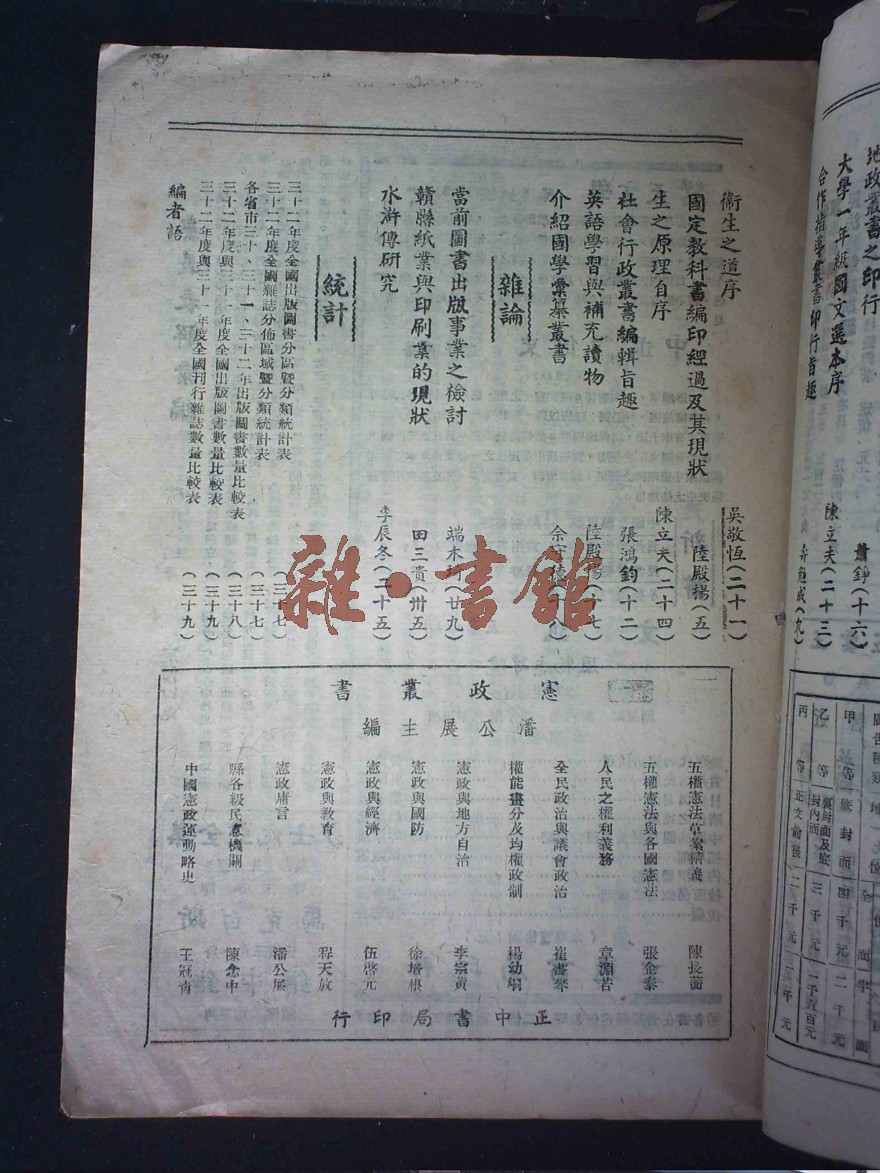 地政叢書之印行　蕭錚（十六）
大學一年級國文選本序　陳立夫（二十三）
合作指導叢書印行旨趣　壽勉成（九）
衞生之道序　吳敬恆（二十一）
國定教科書編印經過及其現狀　陸殿揚（五）
生之原理自序　陳立夫（二十四）
社會行政叢書編輯旨趣　張鴻鈞（十二）
英語學習與補充讀物　陸殿揚（十七）
介紹國學彙纂叢書
雜論
當前圖書出版事業之檢討　端木（廿九）
贛縣紙業與印刷業的現狀　田三貴（卅五）
水滸傳研究　李辰冬（二十五）
統計
三十二年度全國出版圖書分區暨分類統計表
三十二年度全國雜誌分佈區域暨分類統計表（三十七）
各省市三十、三十一、三十二年出版圖書數量比較表（三十七）
三十二年度與三十一年度全國出版圖書數量比較表（三十八）
三十二年度與三十一年度全國刊行雜誌數量比較表（三十九）
編者語（三十九）
雜·書館
憲政叢書
潘公展主編
五權憲法草案精義　陳長蘅
五權憲法與各國憲法　張企泰
人民之權利義務　章淵若
全民政治與議會政治　崔書琴
權能畫分及均權政制　楊幼炯
憲政與地方自治　李宗黃
憲政與國防　徐培根
憲政與經濟　伍啓元
憲政與教育　程天放
憲政庸言　潘公展
縣各級民意機關　陳念中
中國憲政運動略史　王冠青
正中書局印行
甲等　底封面　四千元　二千元
乙等　裏封面及底封內面　三千元　一千五百元
丙等　正文前後　二千元　一千元